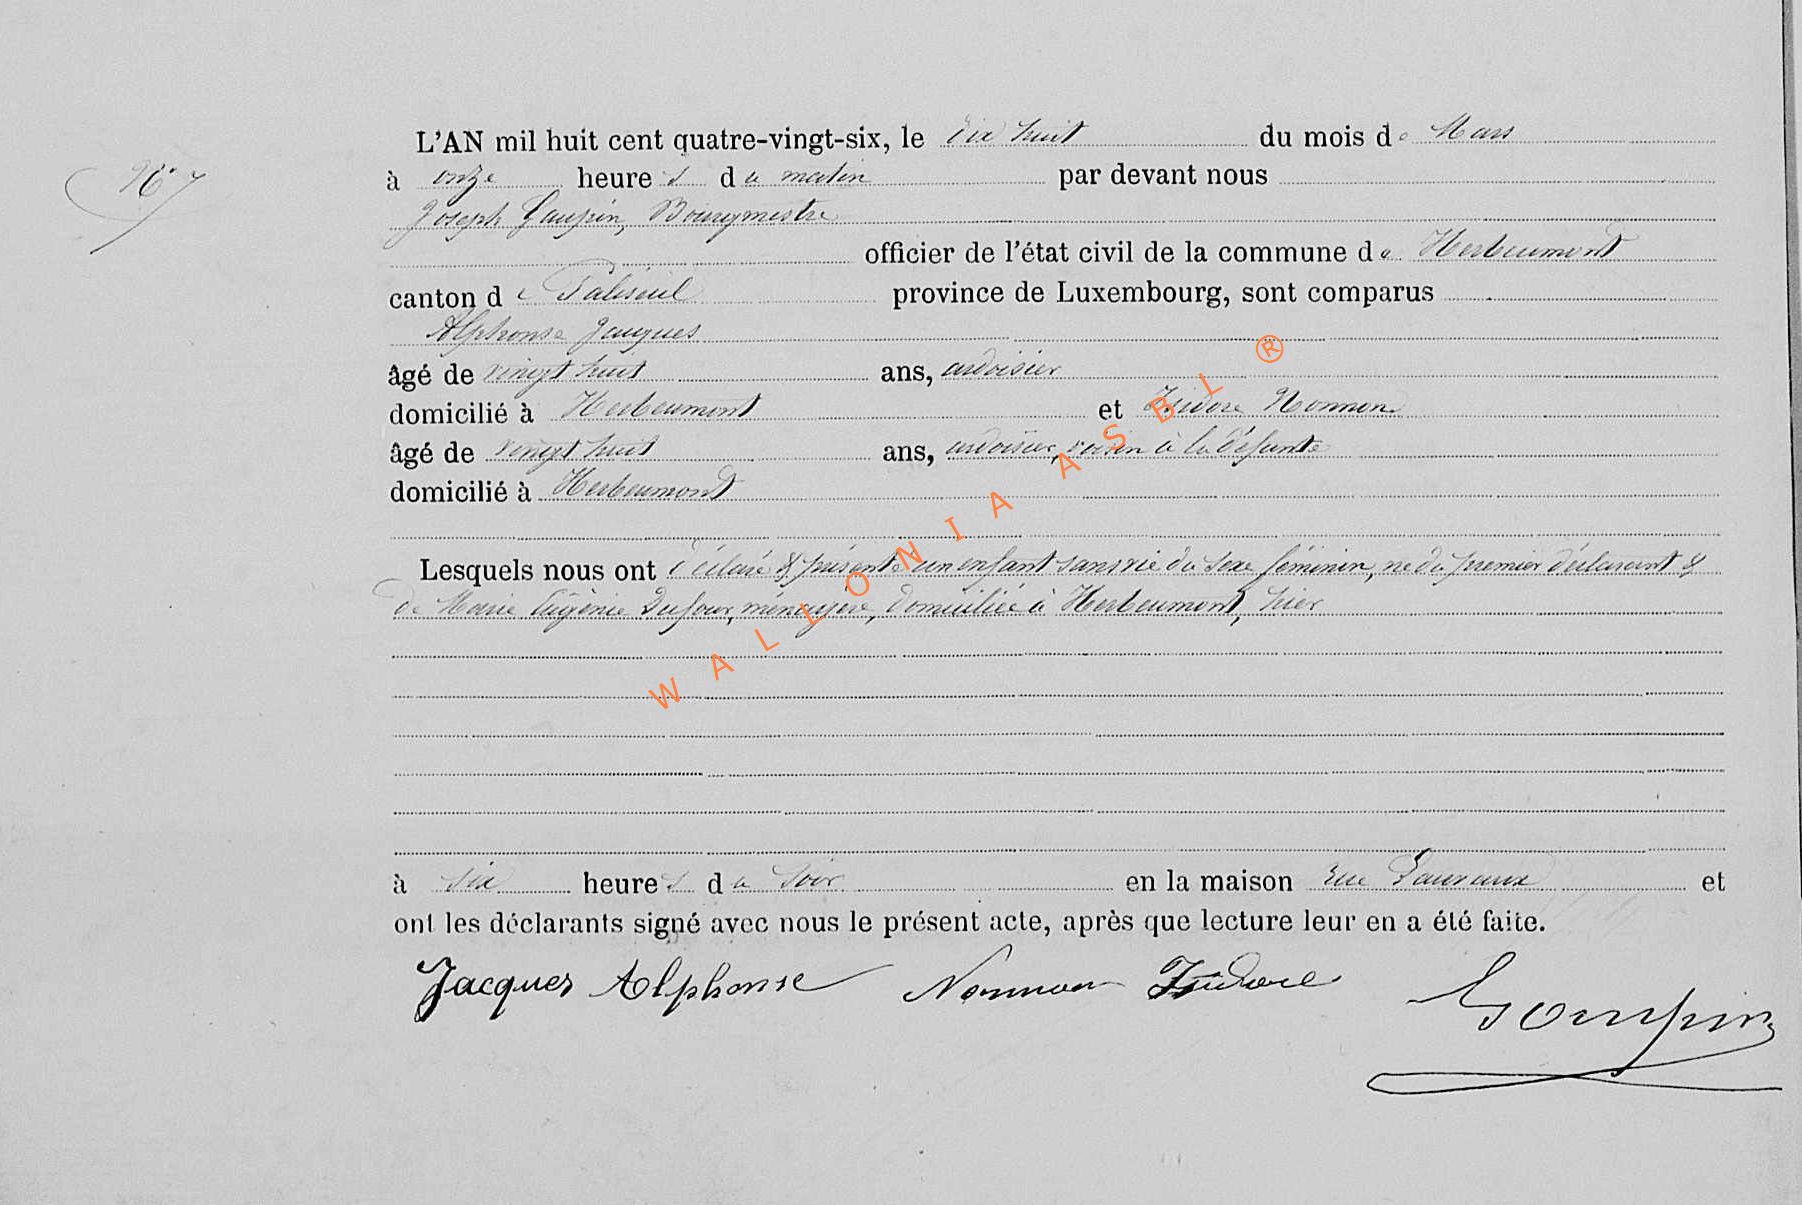 L'AN mil huit cent quatre-vingt-six, le dix huit du mois de Mars
N° 7
à onze heures du matin par devant nous
Joseph Gaupin, Bourgmestre
officier de l'état civil de la commune de Herbeumont
canton de Paliseul province de Luxembourg, sont comparus
Alphonse Jacques
âgé de vingt huit ans, ardoisier
domicilié à Herbeumont et Isidore Nonnon
âgé de vingt huit ans, ardoisier, voisin à la défunte
domicilié à Herbeumont
Lesquels nous ont déclaré & présenté un enfant sans vie du sexe féminin, né du premier déclarant &
de Marie Eugénie Dufour, ménagère, domiciliée à Herbeumont, hier
à six heures du soir en la maison rue et
ont les déclarants signé avec nous le présent acte, après que lecture leur en a été faite.
Jacques Alphonse Nonnon Isidore
WALLONIA ASBL ®